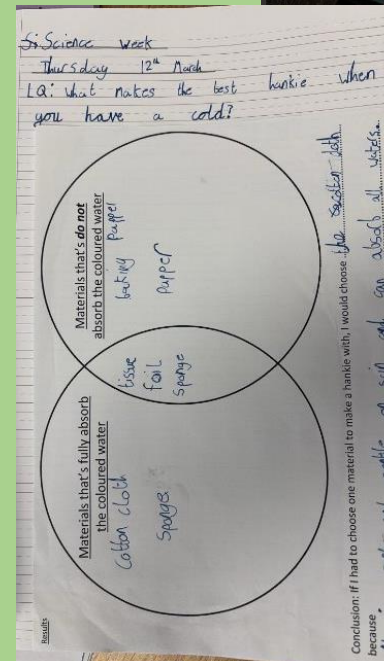 Science week
Thursday 12th March
LQ: What makes the best hankie when
you have a cold?
Results
Materials that's fully absorb
the coloured water
Cotton cloth
Sponge
tissue
foil
sponge
Materials that's do not
absorb the coloured water
baking papper
papper
Conclusion: If I had to choose one material to make a hankie with, I would choose the
because
on skin and can absorb all waters.